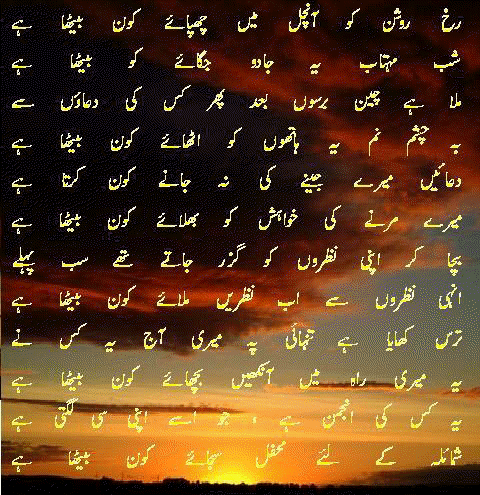 رخ روشن کو آنچل میں چھپائے کون بیٹھا ہے
شب مہتاب یہ جادو جگائے کو بیٹھا ہے
ملا ہے چین برسوں بعد پھر کس کی دعاؤں سے
بہ چشم نم یہ ہاتھوں کو اٹھائے کون بیٹھا ہے
دعائیں میرے جینے کی نہ جانے کون کرتا ہے
میرے مرنے کی خواہش کو بھلائے کون بیٹھا ہے
بچا کر اپنی نظروں کو گزر جاتے تھے سب پہلے
انہی نظروں سے اب نظریں ملائے کون بیٹھا ہے
ترس کھایا ہے تنہائی پہ میری آج یہ کس نے
یہ میری راہ میں آنکھیں بچھائے کون بیٹھا ہے
یہ کس کی انجمن ہے ، جو اسے اپنی سی لگتی ہے
شمائلہ کے لئے محفل سجائے کون بیٹھا ہے